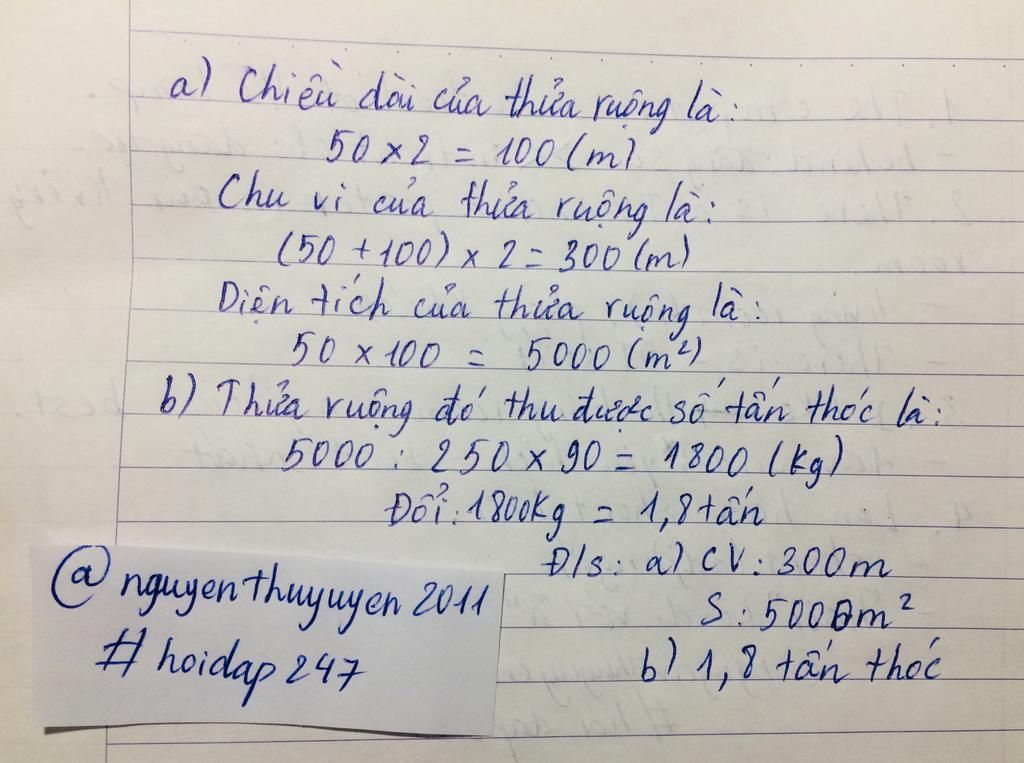 a) Chiều dài của thửa ruộng là:
50 x 2 = 100 (m)
Chu vi của thửa ruộng là:
(50 + 100) x 2 = 300 (m)
Diện tích của thửa ruộng là:
50 x 100 = 5000 (m²)
b) Thửa ruộng đó thu được số tấn thóc là:
5000 : 250 x 90 = 1800 (kg)
Đổi: 1800kg = 1,8 tấn
Đ/s: a) CV: 300m
S: 5000m²
b) 1,8 tấn thóc
@nguyenthuyuyen2011
#hoidap247